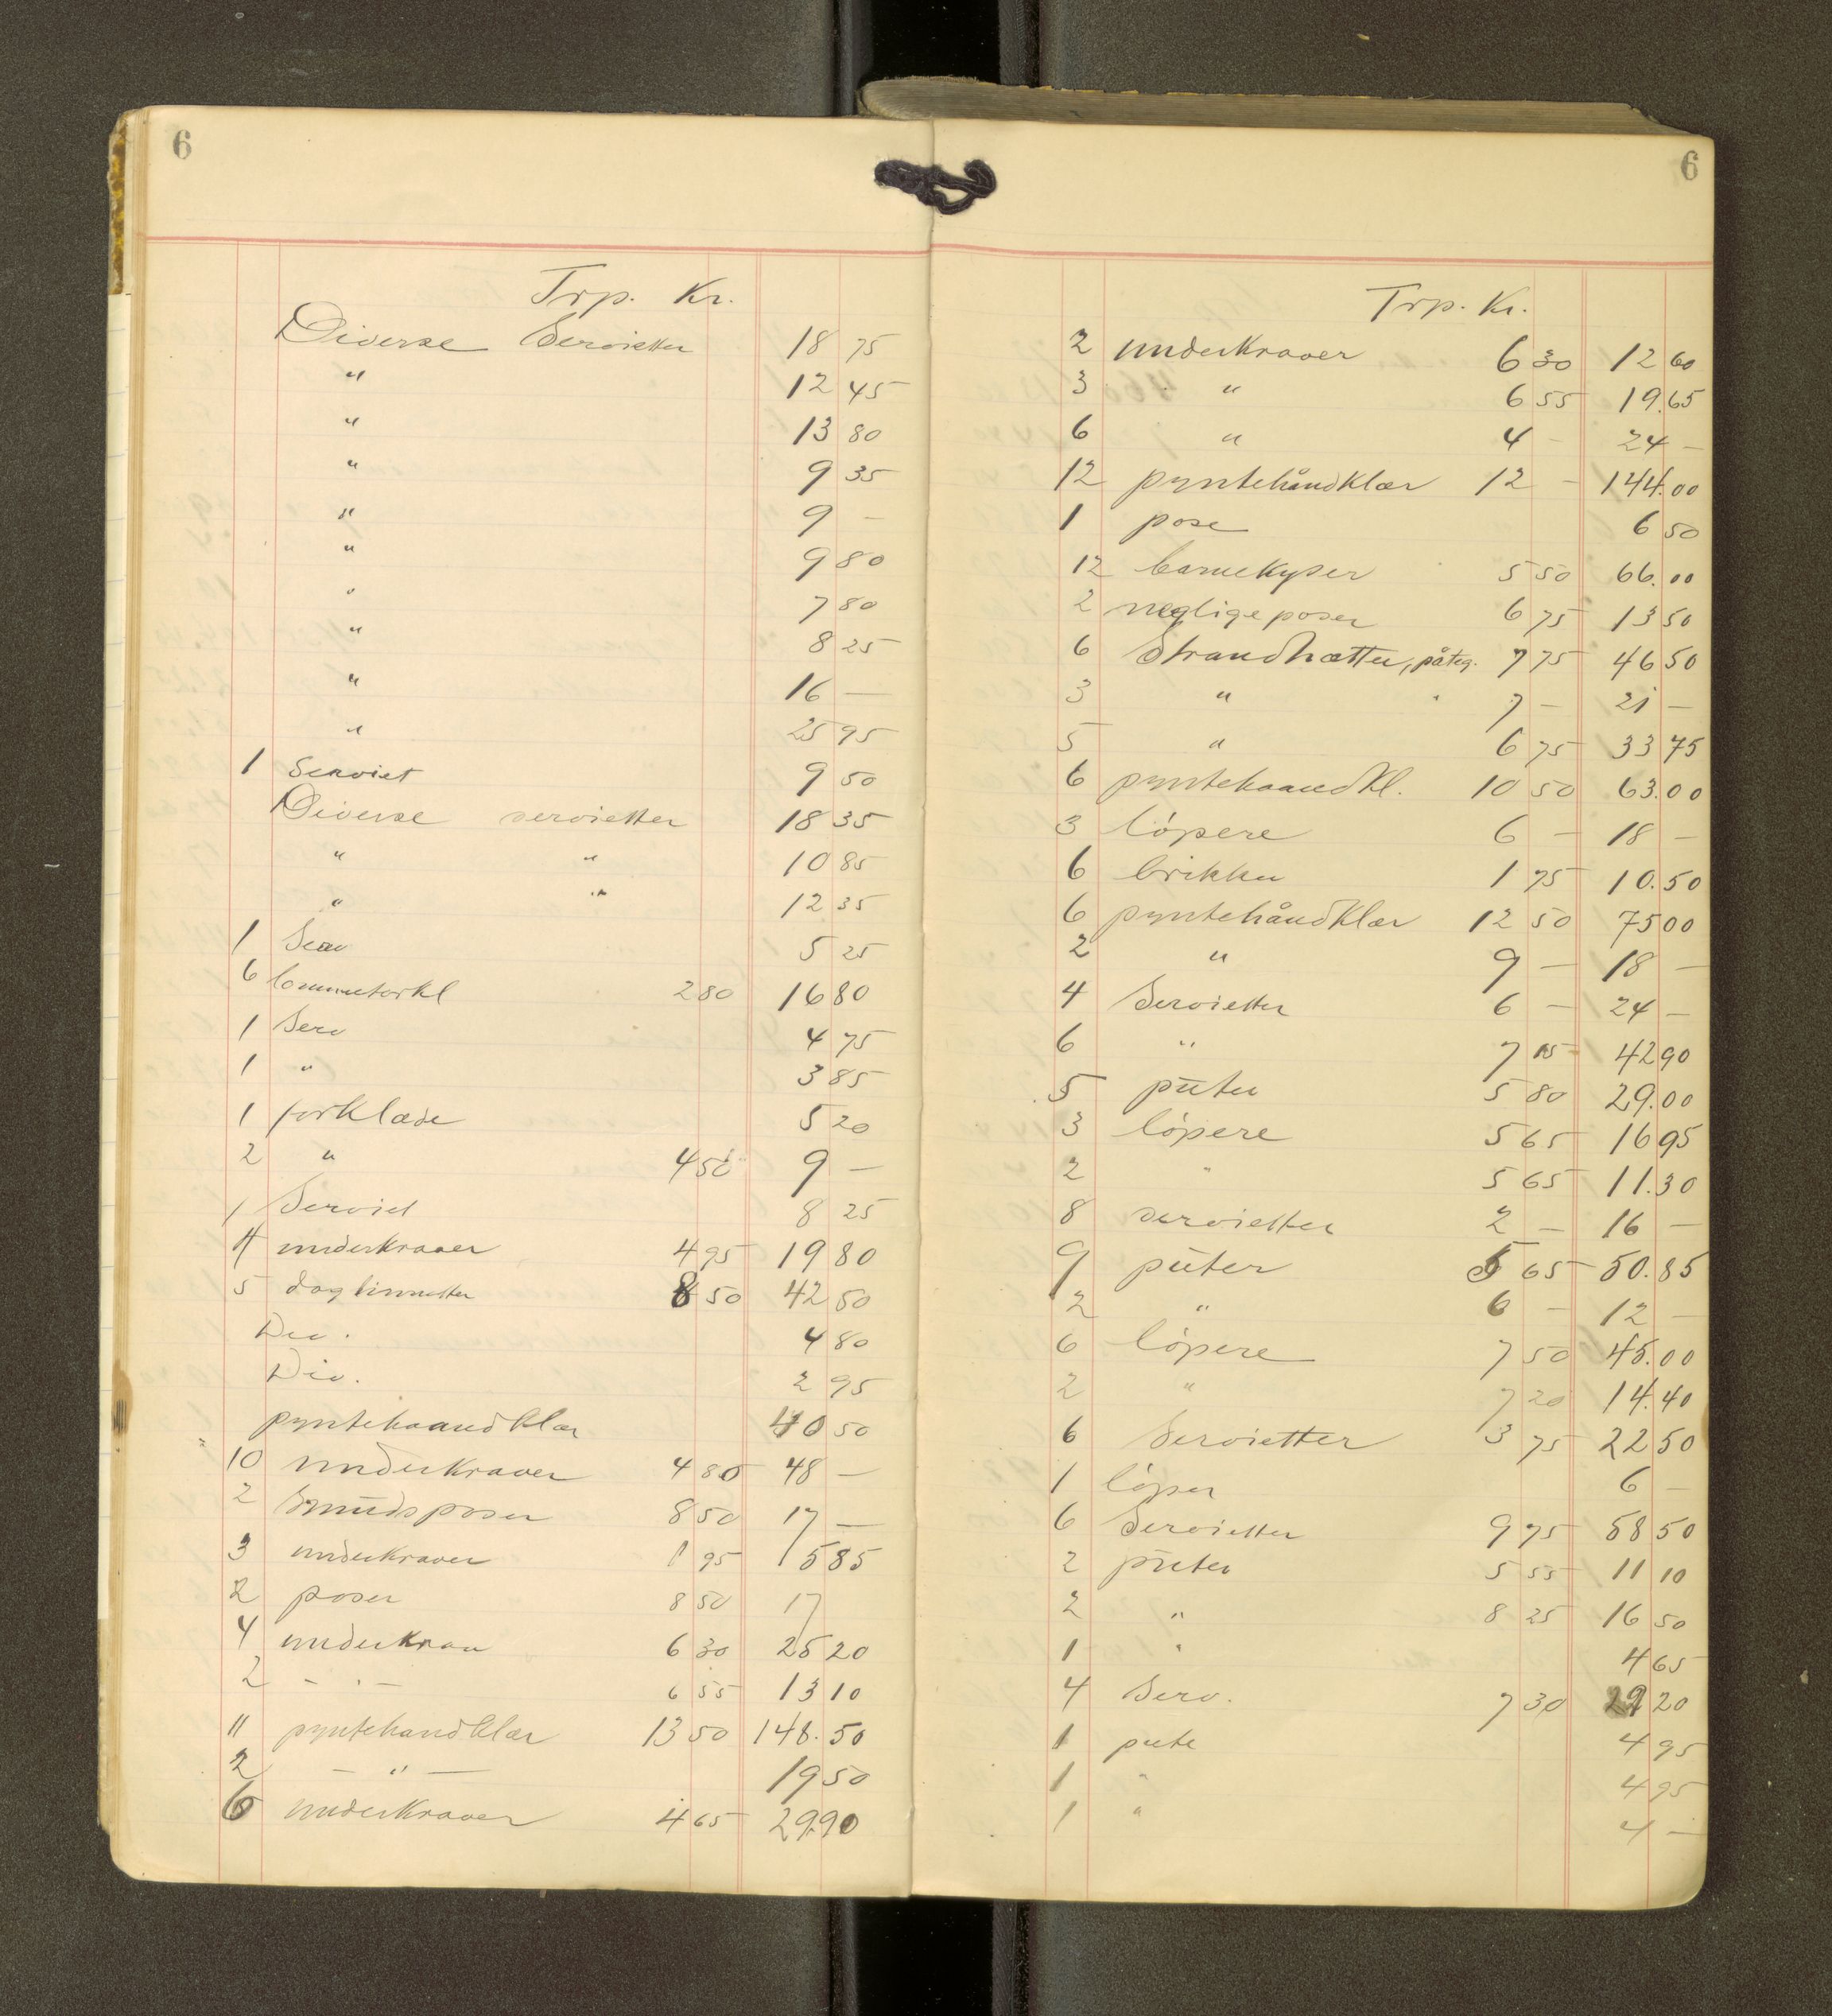 6
Trp. Kr.
Diverse Servietter 18 75
" 12 45
" 13 80
" 9 35
" 9 –
" 9 80
" 7 80
" 8 25
" 16 –
" 25 95
1 Serviet 9 50
Diverse servietter 18 35
" " 10 85
" " 12 35
1 Serv 5 25
6 lommetørkl 2 80 16 80
1 Serv 4 75
1 " 3 85
1 forklæde 5 20
2 " 4 50 9 –
1 Serviet 8 25
4 underkraver 4 95 19 80
5 daglinnetter 8 50 42 50
Div. 4 80
Div. 2 95
pyntehaandklær 40 50
10 underkraver 4 80 48 –
2 Smudsposer 8 50 17 –
3 underkraver 1 95 5 85
2 poser 8 50 17
4 underkrav 6 30 25 20
2 – " – 6 55 13 10
11 pyntehandklær 13 50 148.50
2 – " – 19 50
6 underkraver 4 65 29 90
6
Trp. Kr.
2 underkraver 6 30 12 60
3 " 6 55 19.65
6 " 4 – 24 –
12 pyntehåndklær 12 – 144.00
1 pose 6 50
12 barnekyser 5 50 66.00
2 neglige poser 6 75 13 50
6 Strandhætter, påteg. 7 75 46 50
3 " 7 – 21 –
5 " 6 75 33 75
6 pyntehaandkl. 10 50 63.00
3 løpere 6 – 18 –
6 brikker 1 75 10.50
6 pyntehåndklær 12 50 75 00
2 " 9 – 18 –
4 Servietter 6 – 24 –
6 " 7 15 42 90
5 puter 5 80 29.00
3 løpere 5 65 16 95
2 " 5 65 11.30
8 servietter 2 – 16 –
9 puter 5 65 50.85
2 " 6 – 12 –
6 løpere 7 50 45.00
2 " 7 20 14.40
6 Servietter 3 75 22 50
1 løper 6 –
6 Servietter 9 75 58 50
2 puter 5 55 11 10
2 " 8 25 16 50
1 " 4 65
4 Serv. 7 30 29 20
1 pute 4 95
1 " 4 95
1 " 4 –